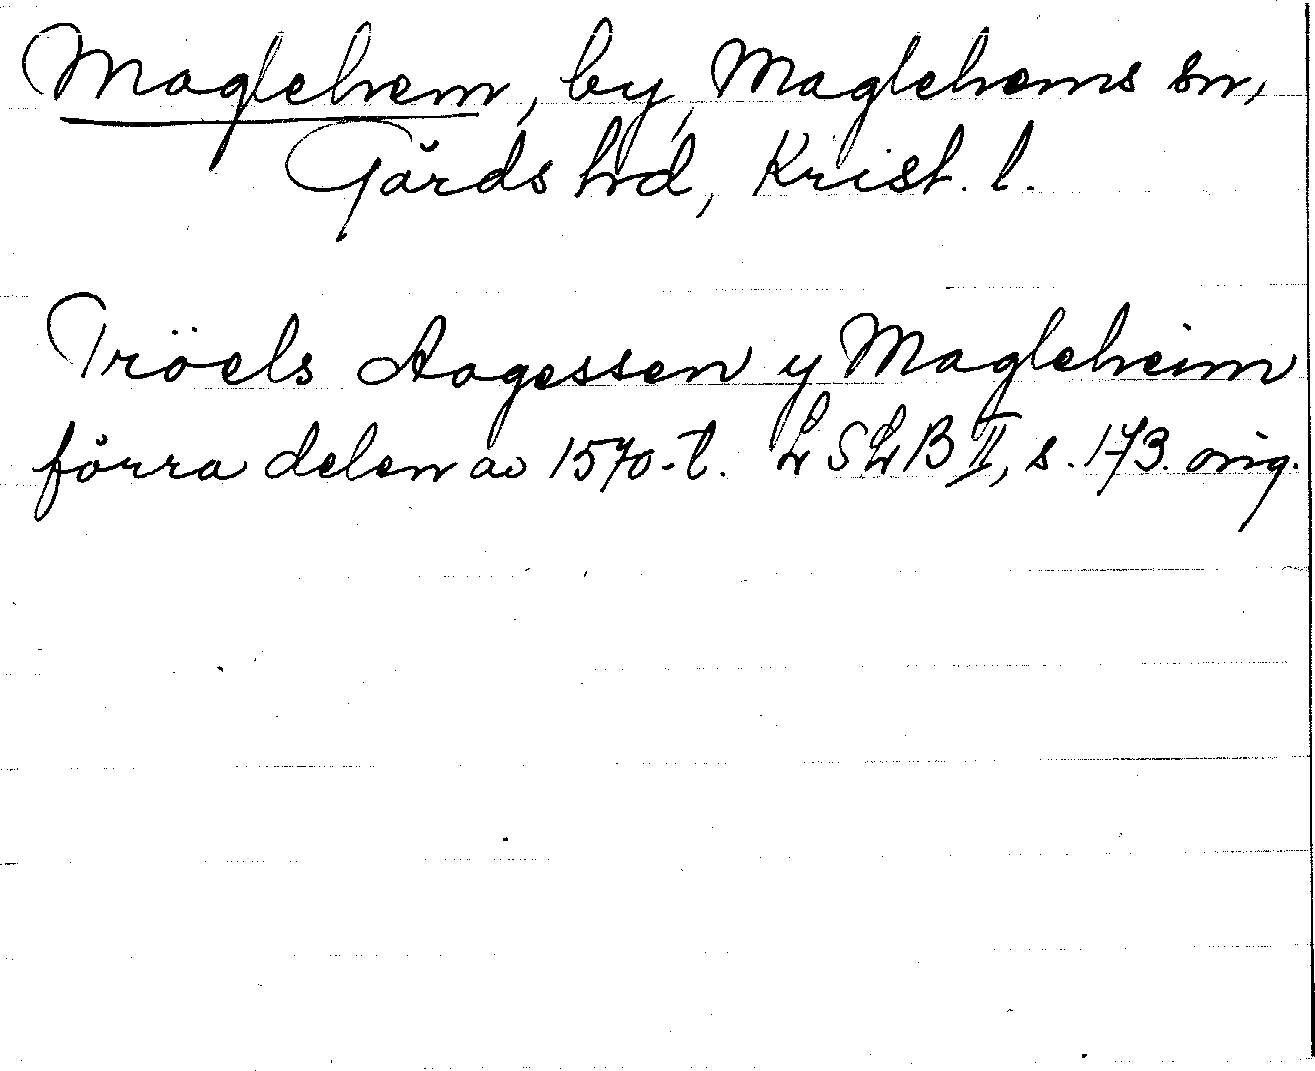 Maglehem, by, Maglehems sn,
Gärds hrd, Krist. l.
Tröels Aagessen y Magleheim
förra delen av 1570-t. LSLB II, s. 173. orig.